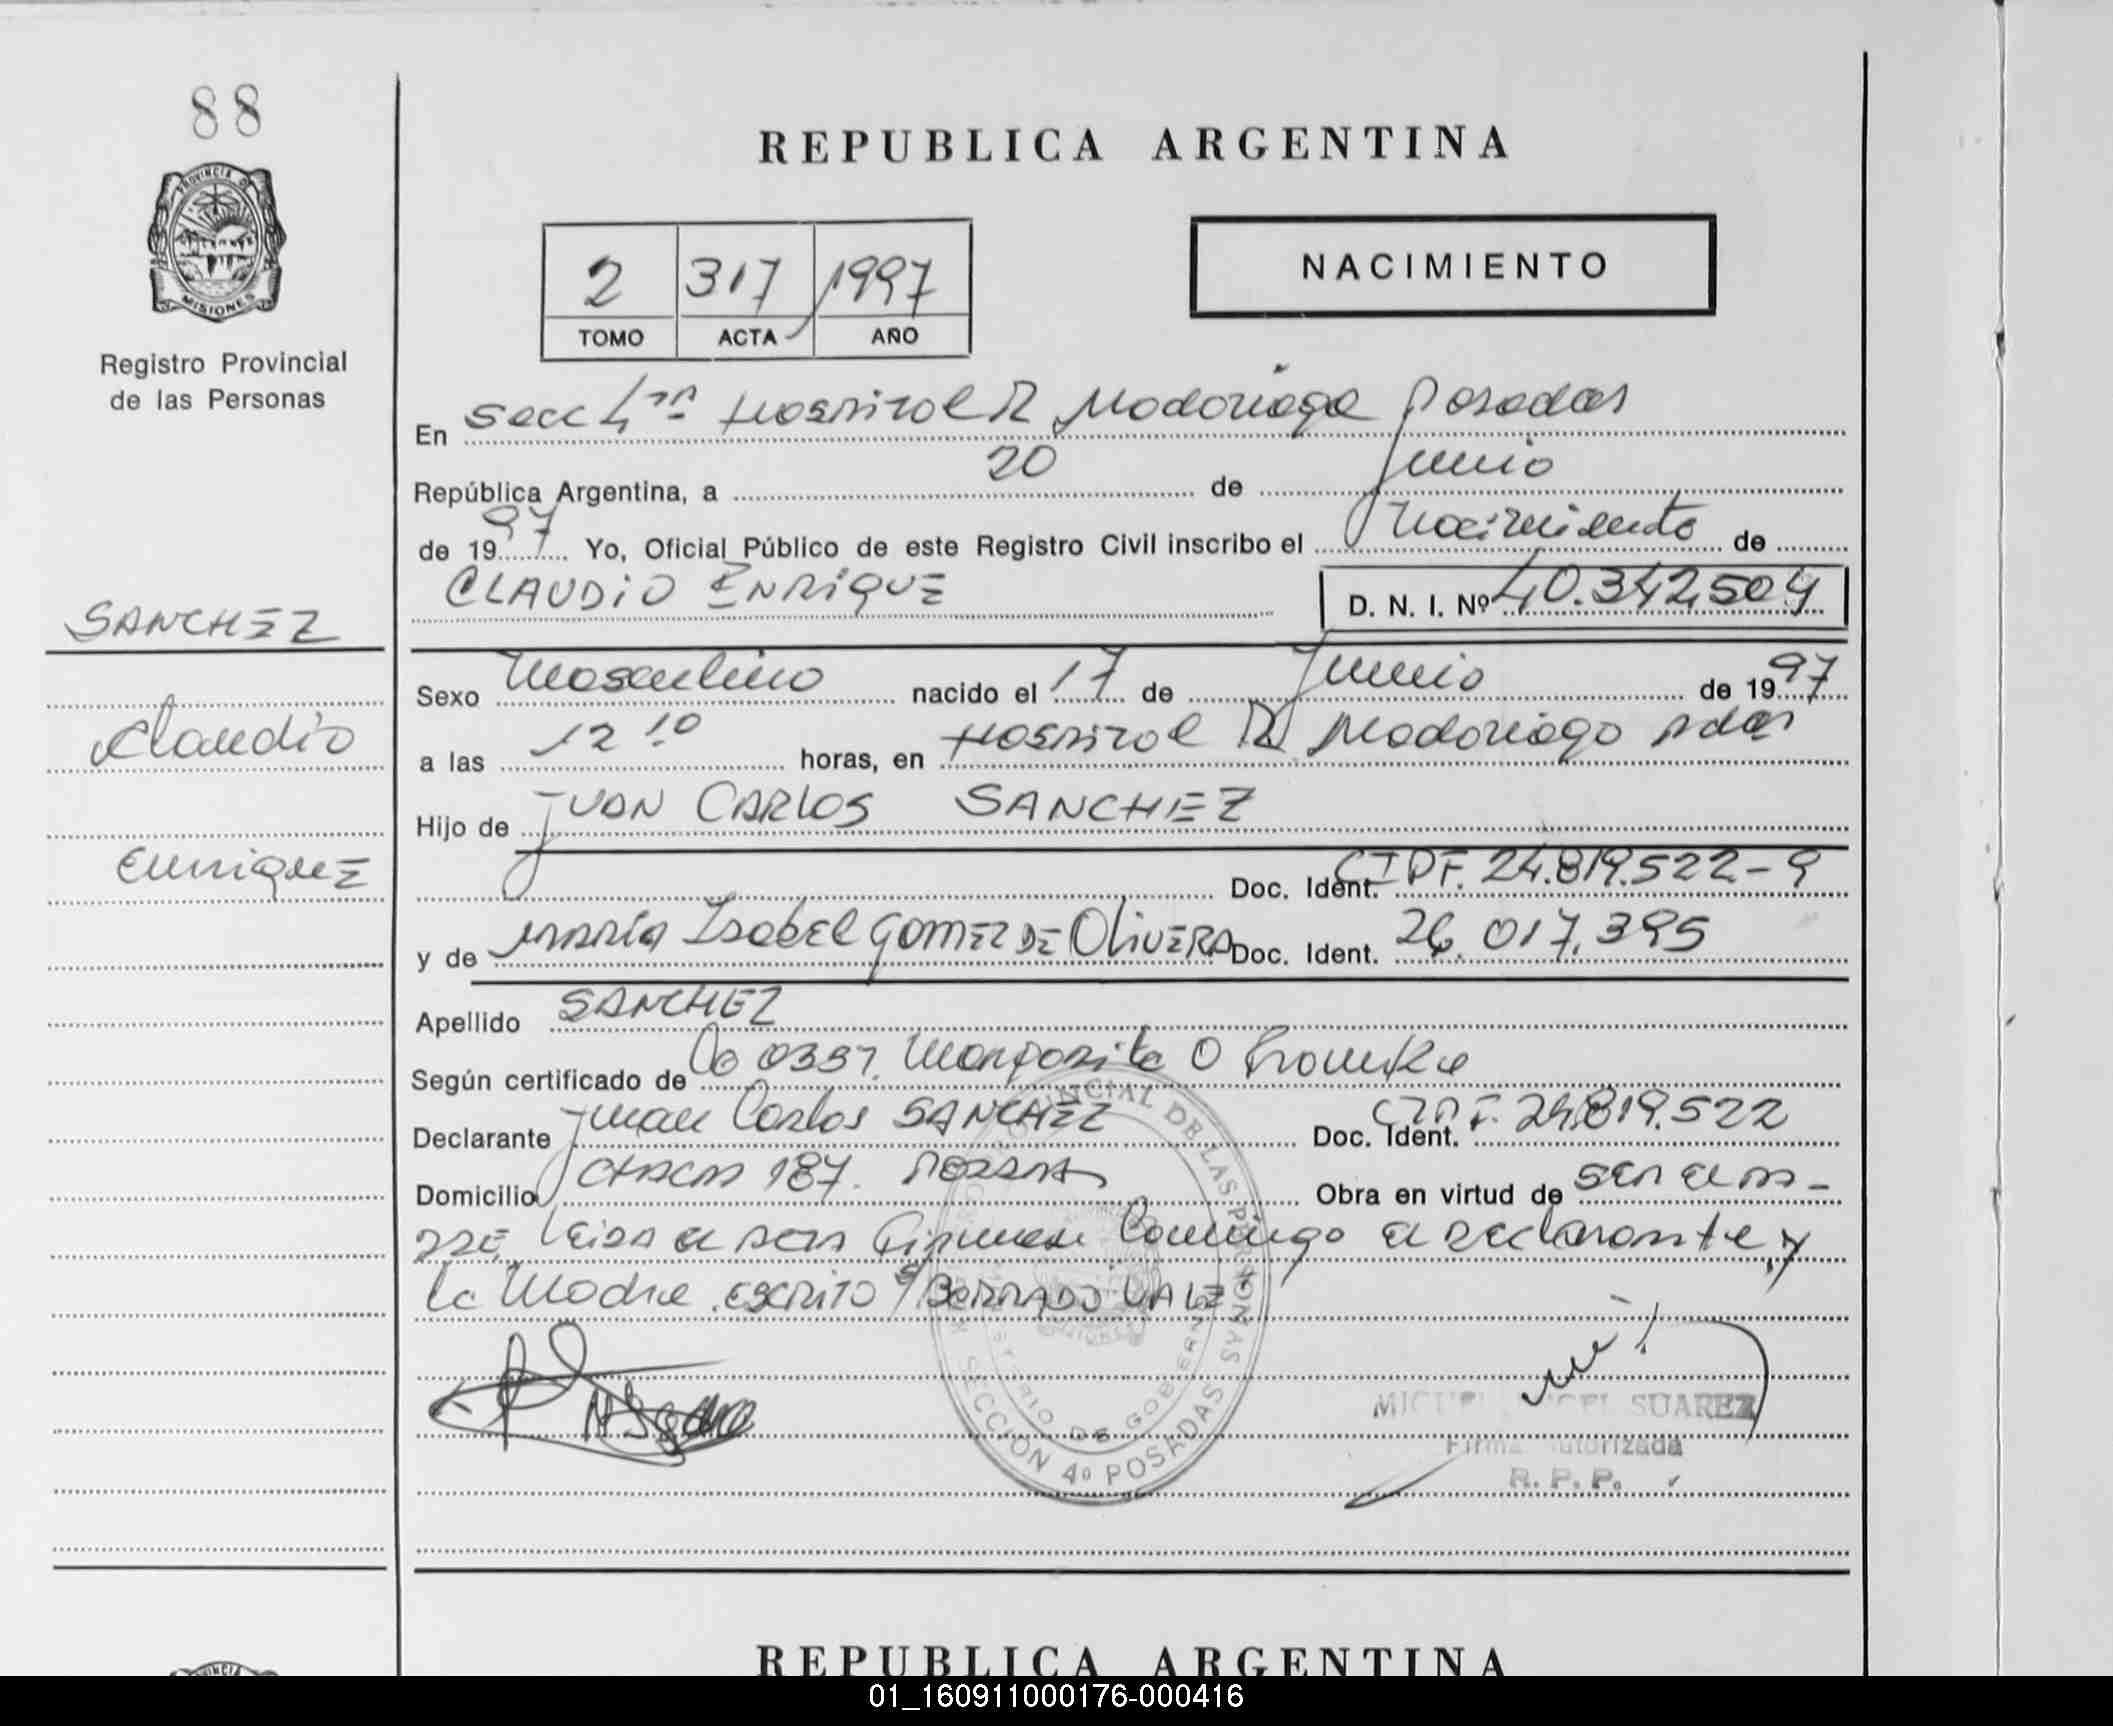 88
PROVINCIA DE
MISIONES
Registro Provincial
de las Personas
SANCHEZ
Claudio
Enrique
REPUBLICA ARGENTINA
2 317 1997
TOMO ACTA AÑO
NACIMIENTO
En Secc 4ta Hospital R Madariaga Posadas
República Argentina, a 20 de Junio
de 1997 Yo, Oficial Público de este Registro Civil inscribo el Nacimiento de
CLAUDIO ENRIQUE D. N. I. Nº 40.342.504
Sexo Masculino nacido el 17 de Junio de 1997
a las 12 10 horas, en Hospital R Madariaga pdas
Hijo de JUAN CARLOS SANCHEZ
Doc. Ident. CIPF. 24.819.522-9
y de MARÍA ISABEL GOMEZ DE OLIVERA Doc. Ident. 26.017.395
Apellido SANCHEZ
Según certificado de Margarita O
Declarante Juan Carlos SANCHEZ Doc. Ident. 24.819.522
Domicilio CHACRA 187. Obra en virtud de ser el pa-
dre, Leida el acta Firman Conmigo el declarante y
la Madre. ESCRITO S/ BORRADO VALE
REGISTRO PROVINCIAL DE LAS PERSONAS
MINISTERIO DE GOBIERNO
SECCION 4º POSADAS
MIGUEL ANGEL SUAREZ
Firma Autorizada
R. P. P.
REPUBLICA ARGENTINA
01_160911000176-000416